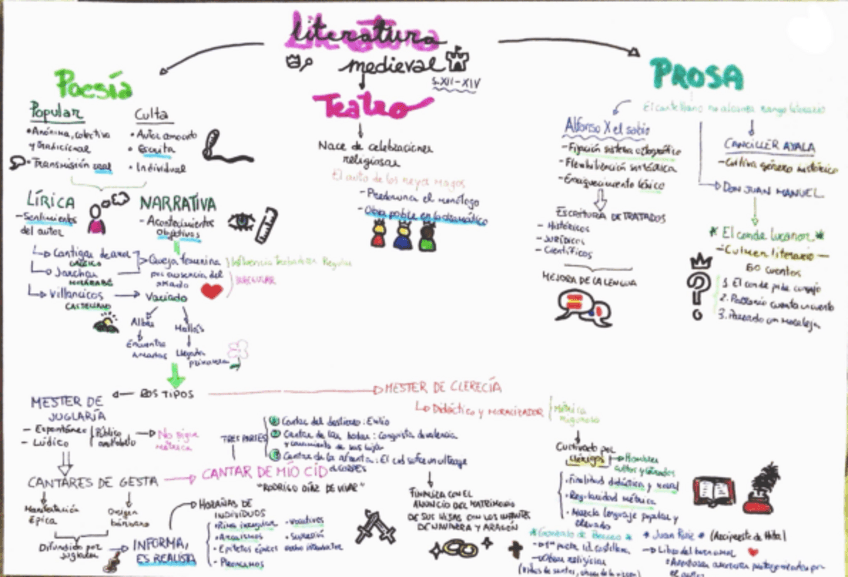 Literatura
medieval
S.XII-XIV
Poesía
Teatro
PROSA
Popular
• Anónima, colectiva
y tradicional
• Transmisión oral
Culta
• Autor conocido
• Escrita
• Individual
LÍRICA
- Sentimientos
del autor
NARRATIVA
- Acontecimientos
objetivos
Cantigas de
GALLEGO
Jarchas
MOZÁRABE
Villancicos
CASTELLANO
Queja femenina
por ausencia del
amado
Variado
Influencia
Regular
Albas
Encuentro
Amados
Llegada
primavera
Nace de celebraciones
religiosas
El auto de los reyes magos
- Predomina el monólogo
- Obra pobre en lo dramático
El castellano no alcanza rango literario
Alfonso X el sabio
- Fijación sistema ortográfico
- Flexibilización sintáctica
- Enriquecimiento léxico
ESCRITURA DE TRATADOS
- Históricos
- Jurídicos
- Científicos
MEJORA DE LA LENGUA
CANCILLER AYALA
- Cultiva género histórico
DON JUAN MANUEL
* El conde Lucanor *
50 cuentos
1. El conde pide consejo
2. Patronio cuenta un cuento
3. Pareado con moraleja
DOS TIPOS
MESTER DE
JUGLARÍA
- Espontáneo
- Lúdico
Público
analfabeto
No sigue
métrica
CANTARES DE GESTA
Manifestación
Épica
Origen
Difundido por
juglares
INFORMA,
ES REALISTA
CANTAR DE MIO CID
"RODRIGO DÍAZ DE VIVAR"
TRES PARTES
① Cantar del destierro: Exilio
② Cantar de las bodas: Conquista de valencia
y casamiento de sus hijas
③ Cantar de la afrenta: El cid sufre un ultraje
HAZAÑAS DE
INDIVIDUOS
• Rima irregular
• Arcaísmos
• Epítetos épicos
• Vocativos
FINALIZA CON EL
ANUNCIO DEL MATRIMONIO
DE SUS HIJAS CON LOS INFANTES
DE NAVARRA Y ARAGÓN
MESTER DE CLERECÍA
Didáctico y MORALIZADOR
Métrica
rigurosa
Cultivado por
clérigos
Hombres
cultos y letrados
• Finalidad didáctica y moral
• Regularidad métrica
• Mezcla lenguaje popular y
elevado
* Gonzalo de Berceo *
- 1er poeta lit. castellana
- Obras religiosas
* Juan Ruiz * (Arcipreste de Hita)
- Libro del buen amor